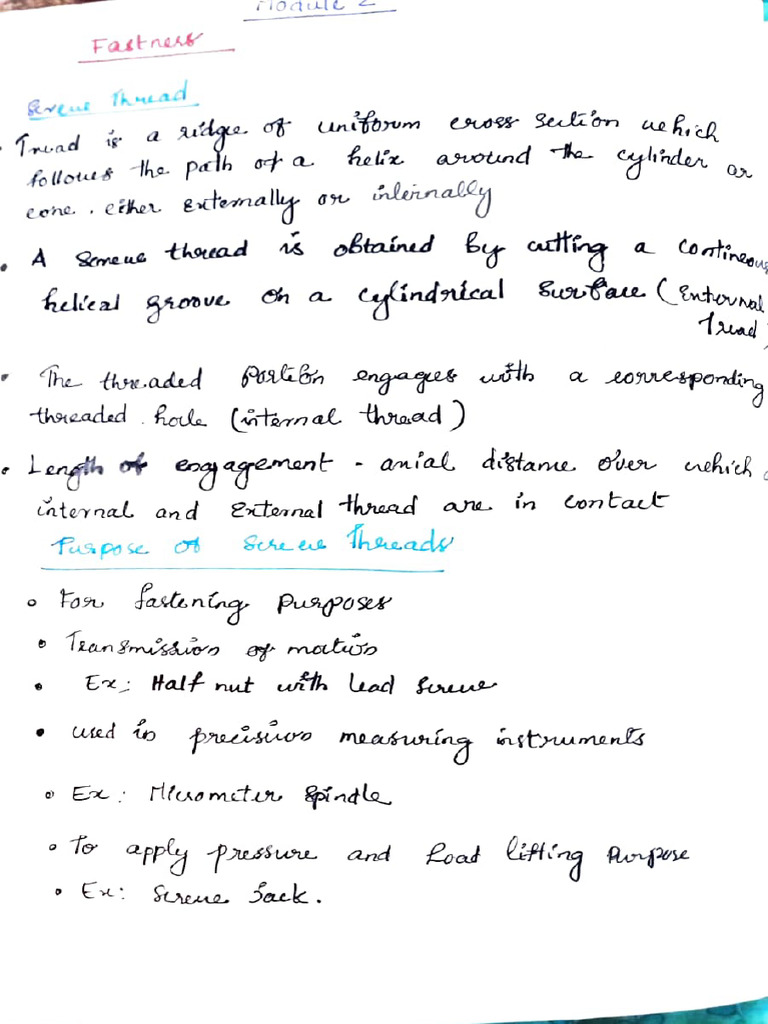 Module 2
Fastners
Screw Thread
Tread is a ridge of uniform cross section which
follows the path of a helix around the cylinder or
cone, either externally or internally
• A Screw thread is obtained by cutting a contineous
helical groove on a cylindrical Surface (External
Tread)
• The threaded Portion engages with a corresponding
threaded hole (internal thread)
• Length of engagement - axial distance over which
internal and External thread are in contact
Purpose of Screw Threads
• For fastening purposes
• Transmission of motion
• Ex: Half nut with lead Screw
• used in precision measuring instruments
• Ex: Micrometer Spindle
• To apply pressure and Load lifting Purpose
• Ex: Screw Jack.